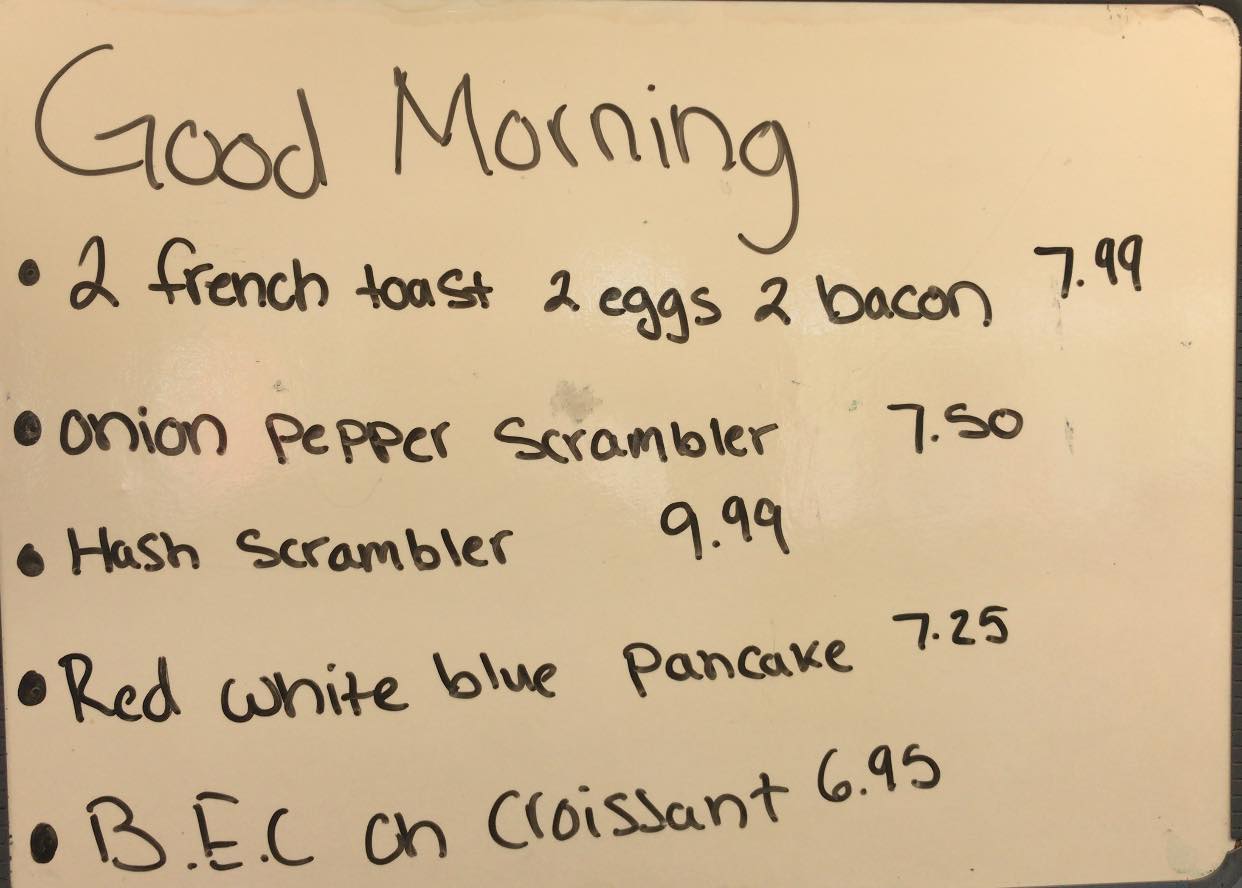 Good Morning
• 2 french toast 2 eggs 2 bacon 7.99
• onion pepper scrambler 7.50
• Hash scrambler 9.99
• Red white blue pancake 7.25
• B.E.C on Croissant 6.95